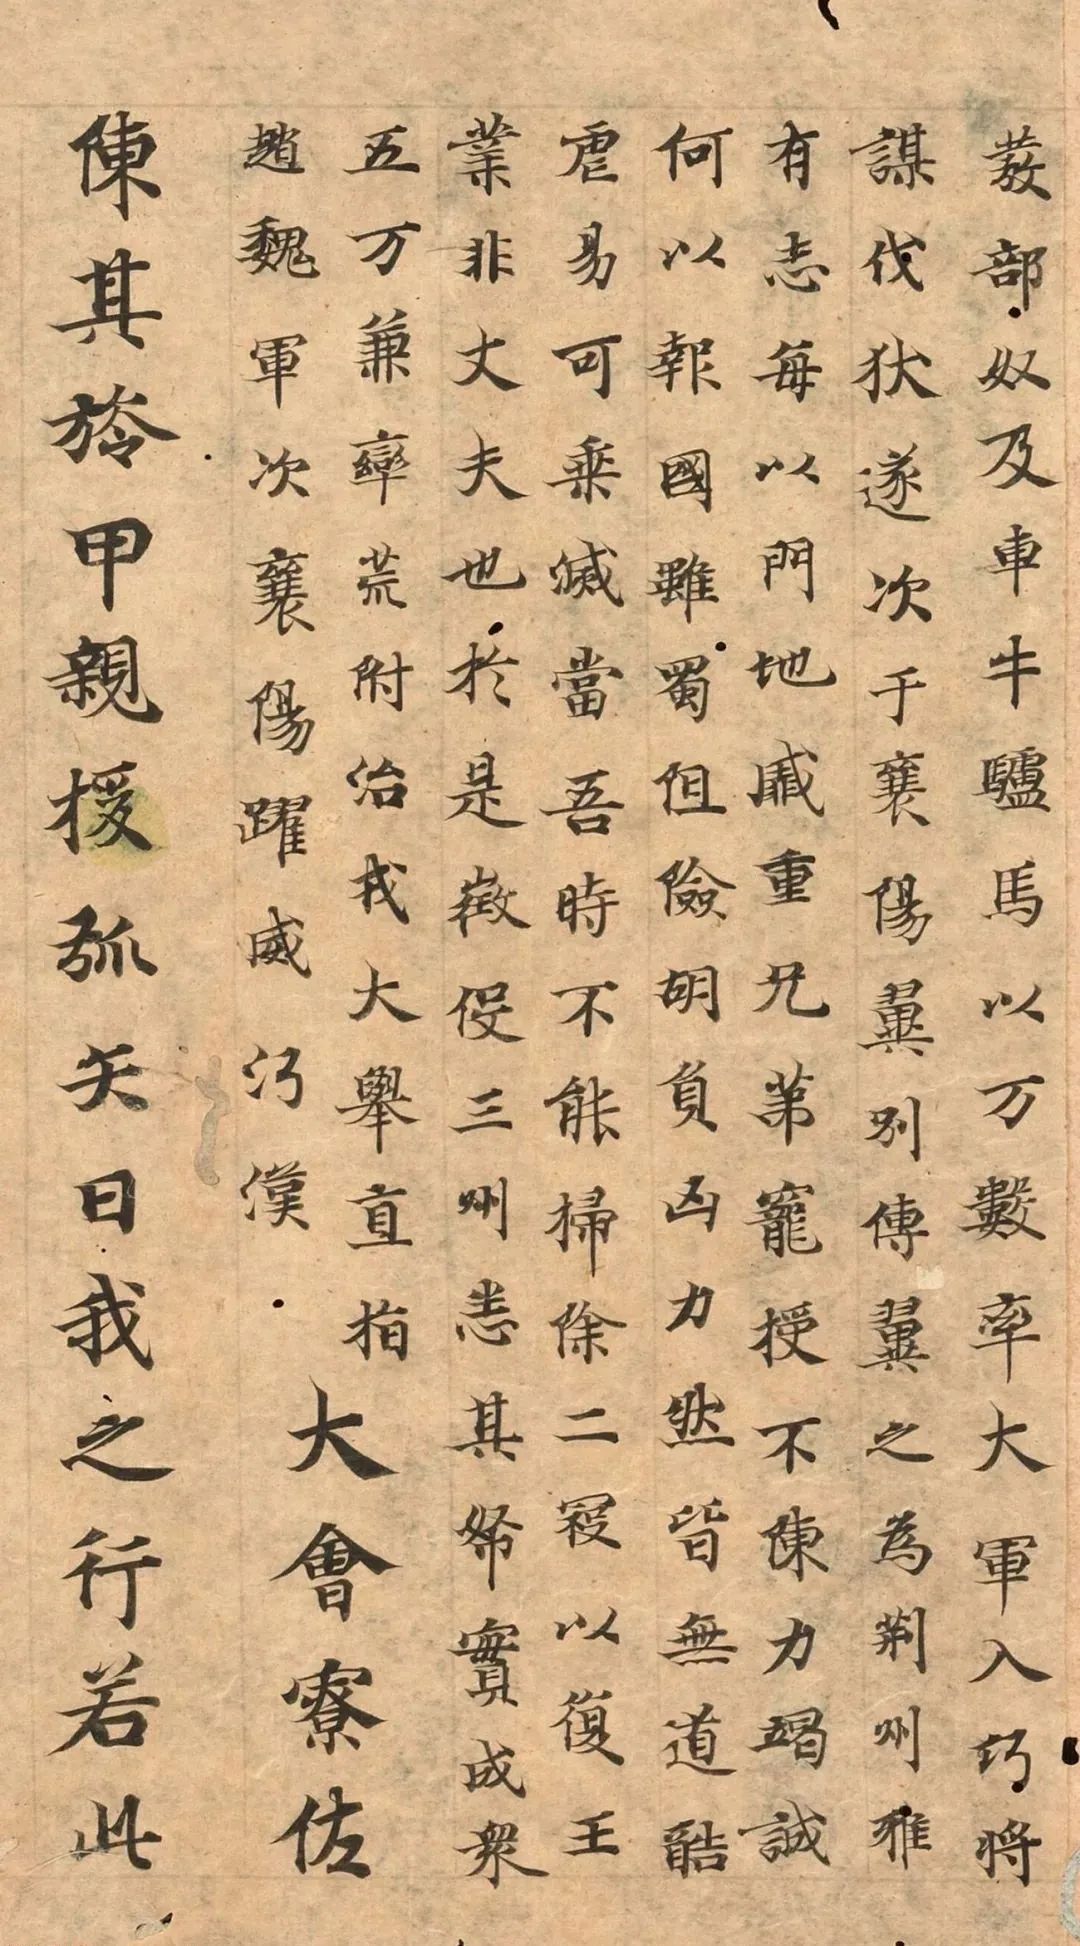 發部奴及車牛驢馬以万數率大軍入沔將
謀伐狄遂次于襄陽翼別傳翼之為荊州雅
有志每以門地戚重兄弟寵授不陳力竭誠
何以報國雖蜀阻險胡負凶力然皆無道酷
虐易可乘滅當吾時不能掃除二寇以復王
業非丈夫也於是徵役三州悉其帑實成衆
五万兼率荒附治戎大舉直指
趙魏軍次襄陽躍威沔漢
大會寮佐
陳其旍甲親授弧矢曰我之行若此